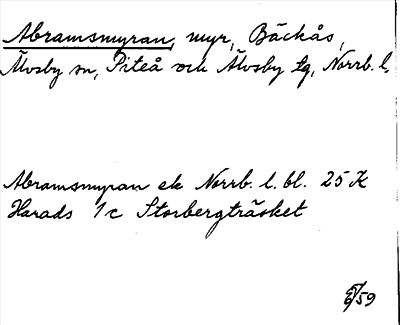 Abramsmyran, myr, Bäckås,
Älvsby sn, Piteå och Älvsby tg, Norrb. l.
Abramsmyran ek Norrb. l. bl. 25 K
Harads 1 c Storbergträsket
59